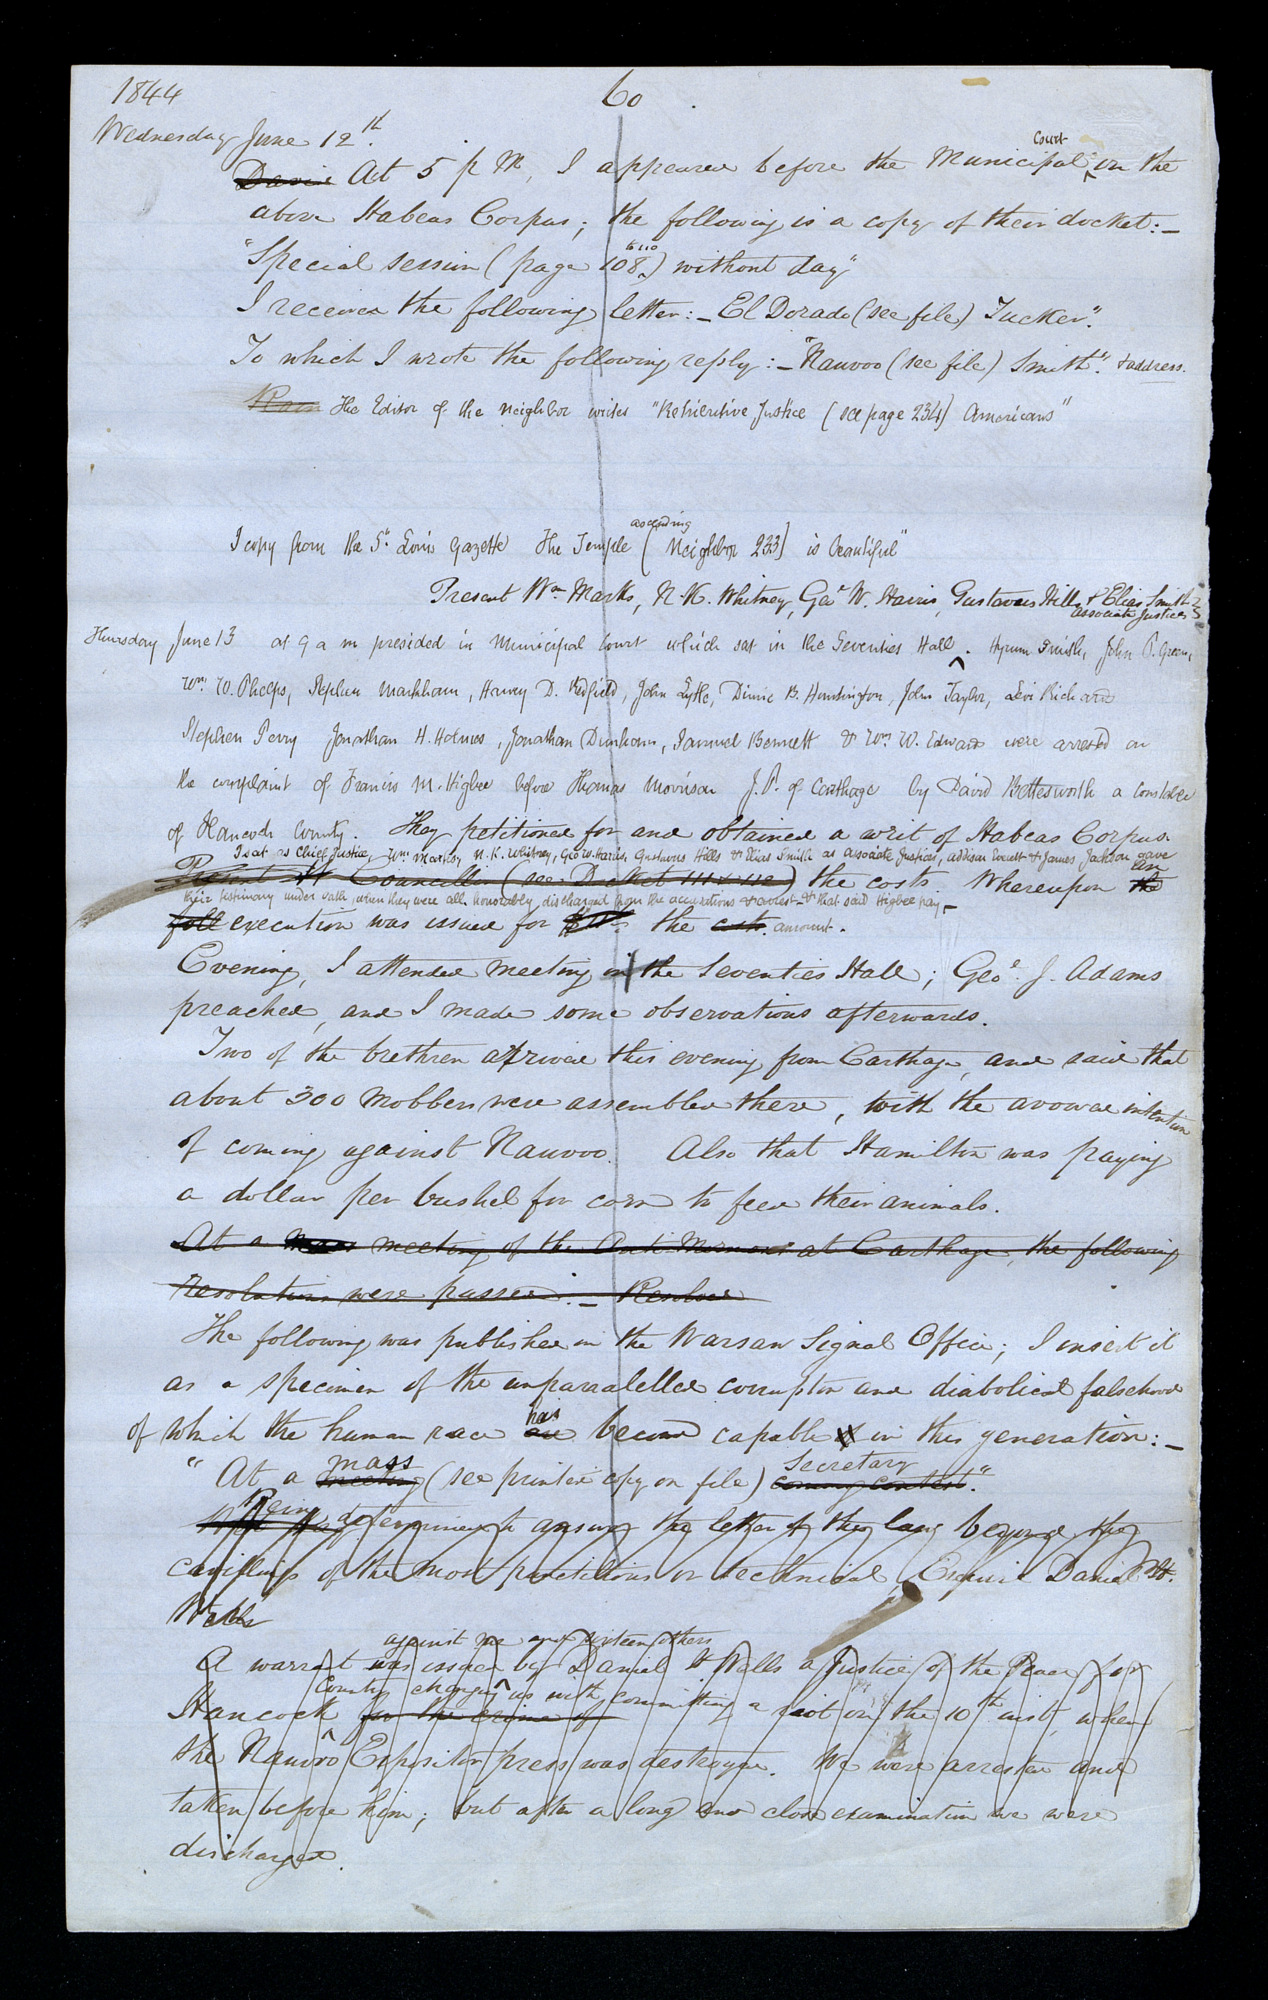 1844
60
Wednesday June 12th.
Court
At 5 p M, I appeared before the Municipal ^ on the
above Habeas Corpus; the following is a copy of their docket:—
to 110
"Special session (page 108^) without day"
I received the following letter:— El Dorado (see file) Tucker".
To which I wrote the following reply:— "Nauvoo (see file) Smith". & address.
Rain The Editor of the Neighbor writes "Retributive Justice (see page 234) Americans"
ascending
I copy from the St. Louis Gazette The Temple (Neighbor 233) is beautiful"
Present Wm Marks, N. K. Whitney, Geo. W. Harris, Gustavus Hills & Elias Smith
associate Justices
Thursday June 13 at 9 a m presided in Municipal Court which sat in the Seventies Hall ^. Hyrum Smith, John P. Green,
Wm. W. Phelps, Stephen Markham, Harvey D. Redfield, John Lytle, Dimic B. Huntington, John Taylor, Levi Richard
Stephen Perry Jonathan H. Holmes, Jonathan Dunham, Samuel Bennett & Wm W. Edward were arrested on
the complaint of Francis M. Higbee before Thomas Morrison J. P. of Carthage by David Bettesworth a constable
of Hancock County. They petitioned for and obtained a writ of Habeas Corpus.
I sat as Chief Justice, Wm Marks, N. K. Whitney, Geo W. Harris, Gustavus Hills & Elias Smith as associate Justices, addison Everett & James Jackson gave
Councillor (see Docket 111 & 112) the costs. Whereupon the
their testimony under oath, when they were all honorably discharged from the accusations & arrest— & that said Higbee pay—
foll execution was issued for the costs. amount.
Evening, I attended meeting in the Seventies Hall; Geo. J. Adams
preached, and I made some observations afterwards.
Two of the brethren arrived this evening from Carthage, and said that
about 300 Mobbers were assembled there, with the avowed intention
of coming against Nauvoo. Also that Hamilton was paying
a dollar per bushel for corn to feed their animals.
At a Mass meeting of the Anti Mormons at Carthage, the following
resolutions were passed:— Resolved
The following was published in the Warsaw Signal Office; I insert it
as a specimen of the unparralelled corruption and diabolical falsehood
has
of which the human race are become capable in this generation:—
mass Secretary
"At a meeting (see printed copy on file) coming contest."
Being
determined to answer the letter of the law, beyond the
cavillings of the most technical, Esquire Daniel H.
Wells
against me and sixteen others
A warrant was issued by Daniel H Wells a Justice of the Peace for
County charging ^ us with
Hancock ^ for the crime of committing a riot on the 10th inst, when
the Nauvoo Expositor press was destroyed. We were arrested and
taken before him; but after a long and close examination we were
discharged.